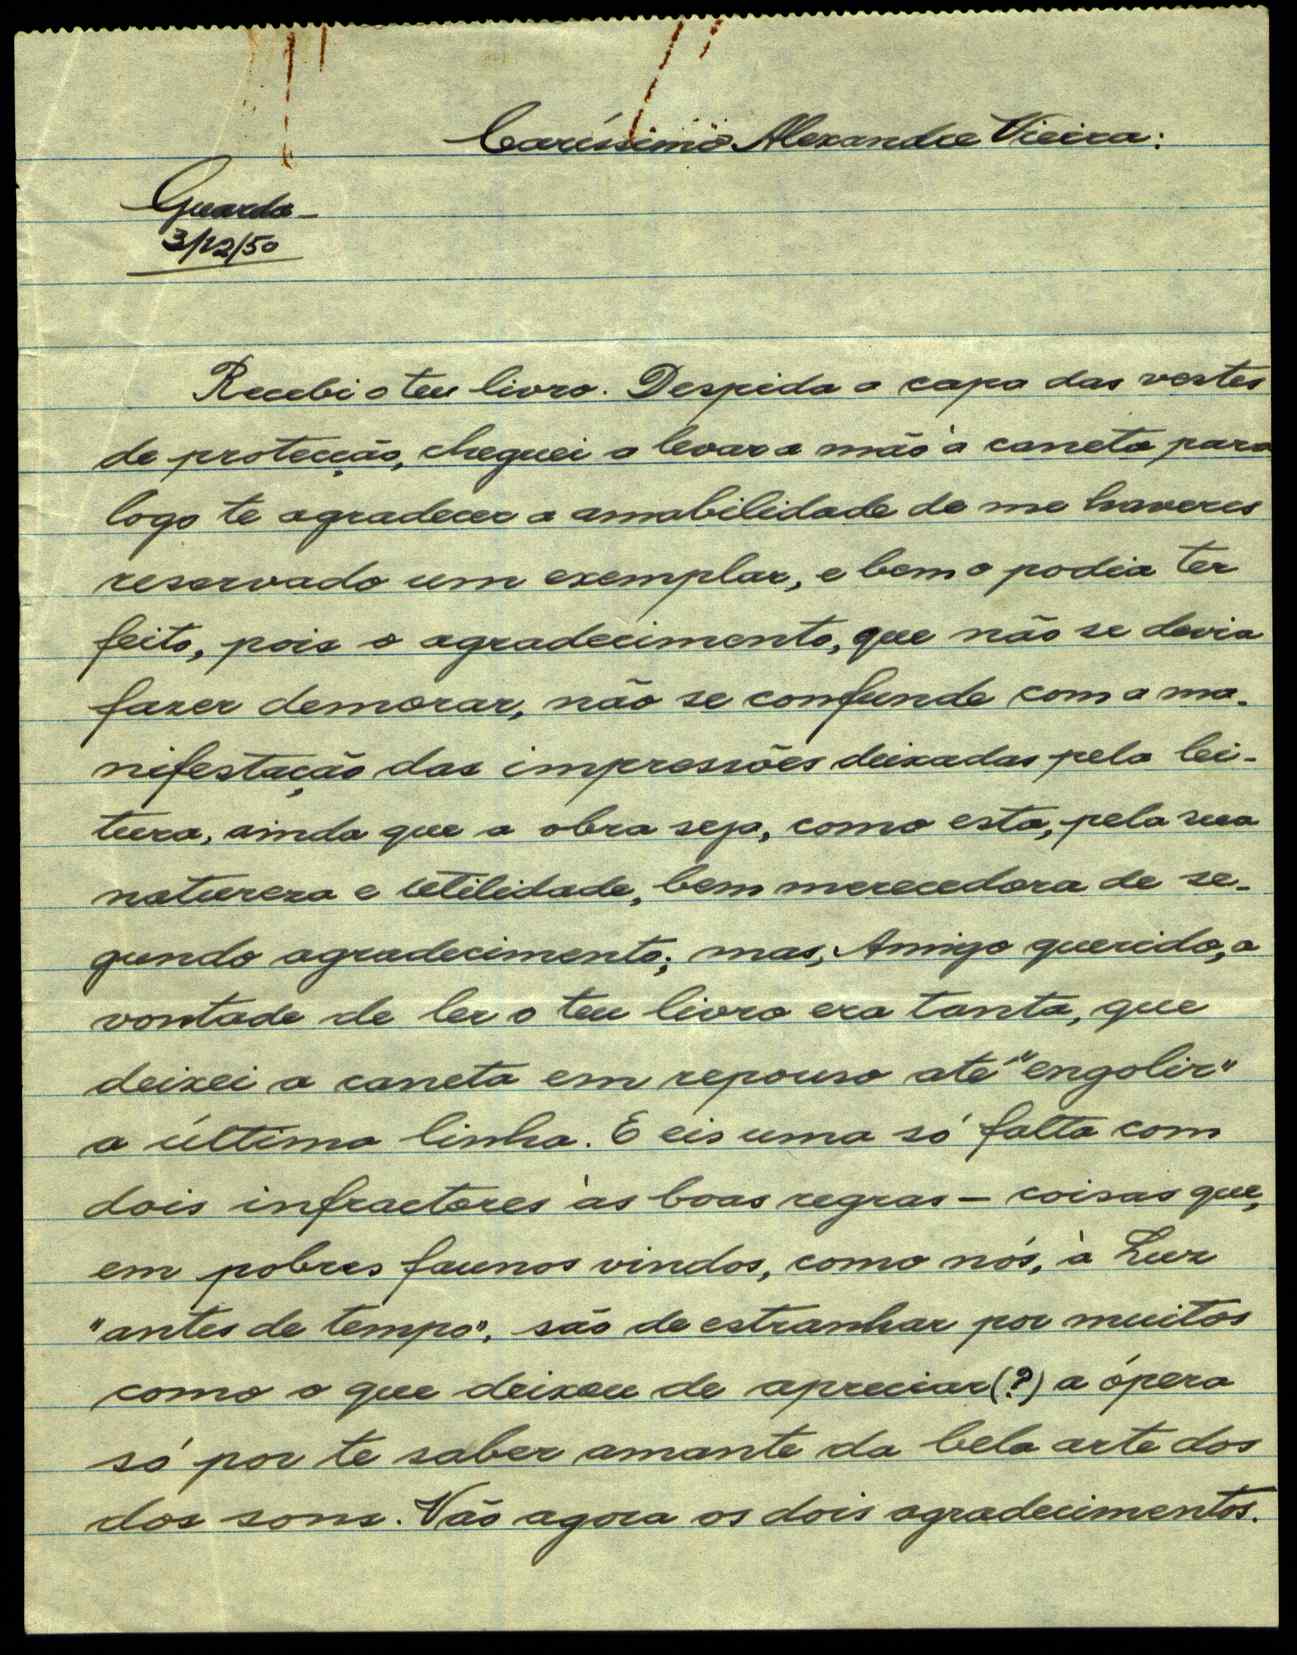 Caríssimo Alexandre Vieira:
Guarda-
3/12/50
Recebi o teu livro. Despida a capa das vestes
de protecção, cheguei a levar a mão à caneta para
logo te agradecer a amabilidade de me haveres
reservado um exemplar, e bem o podia ter
feito, pois o agradecimento, que não se devia
fazer demorar, não se confunde com a ma-
nifestação das impressões deixadas pela lei-
tura, ainda que a obra seja, como esta, pela sua
natureza e utilidade, bem merecedora de se-
gundo agradecimento; mas, Amigo querido, a
vontade de ler o teu livro era tanta, que
deixei a caneta em repouso até "engolir"
a última linha. E eis uma só falta com
dois infractores às boas regras – coisas que,
em pobres faunos vindos, como nós, à Luz
"antes de tempo", são de estranhar por muitos
como o que deixou de apreciar (?) a ópera
só por te saber amante da bela arte dos
dos sons. Vão agora os dois agradecimentos.